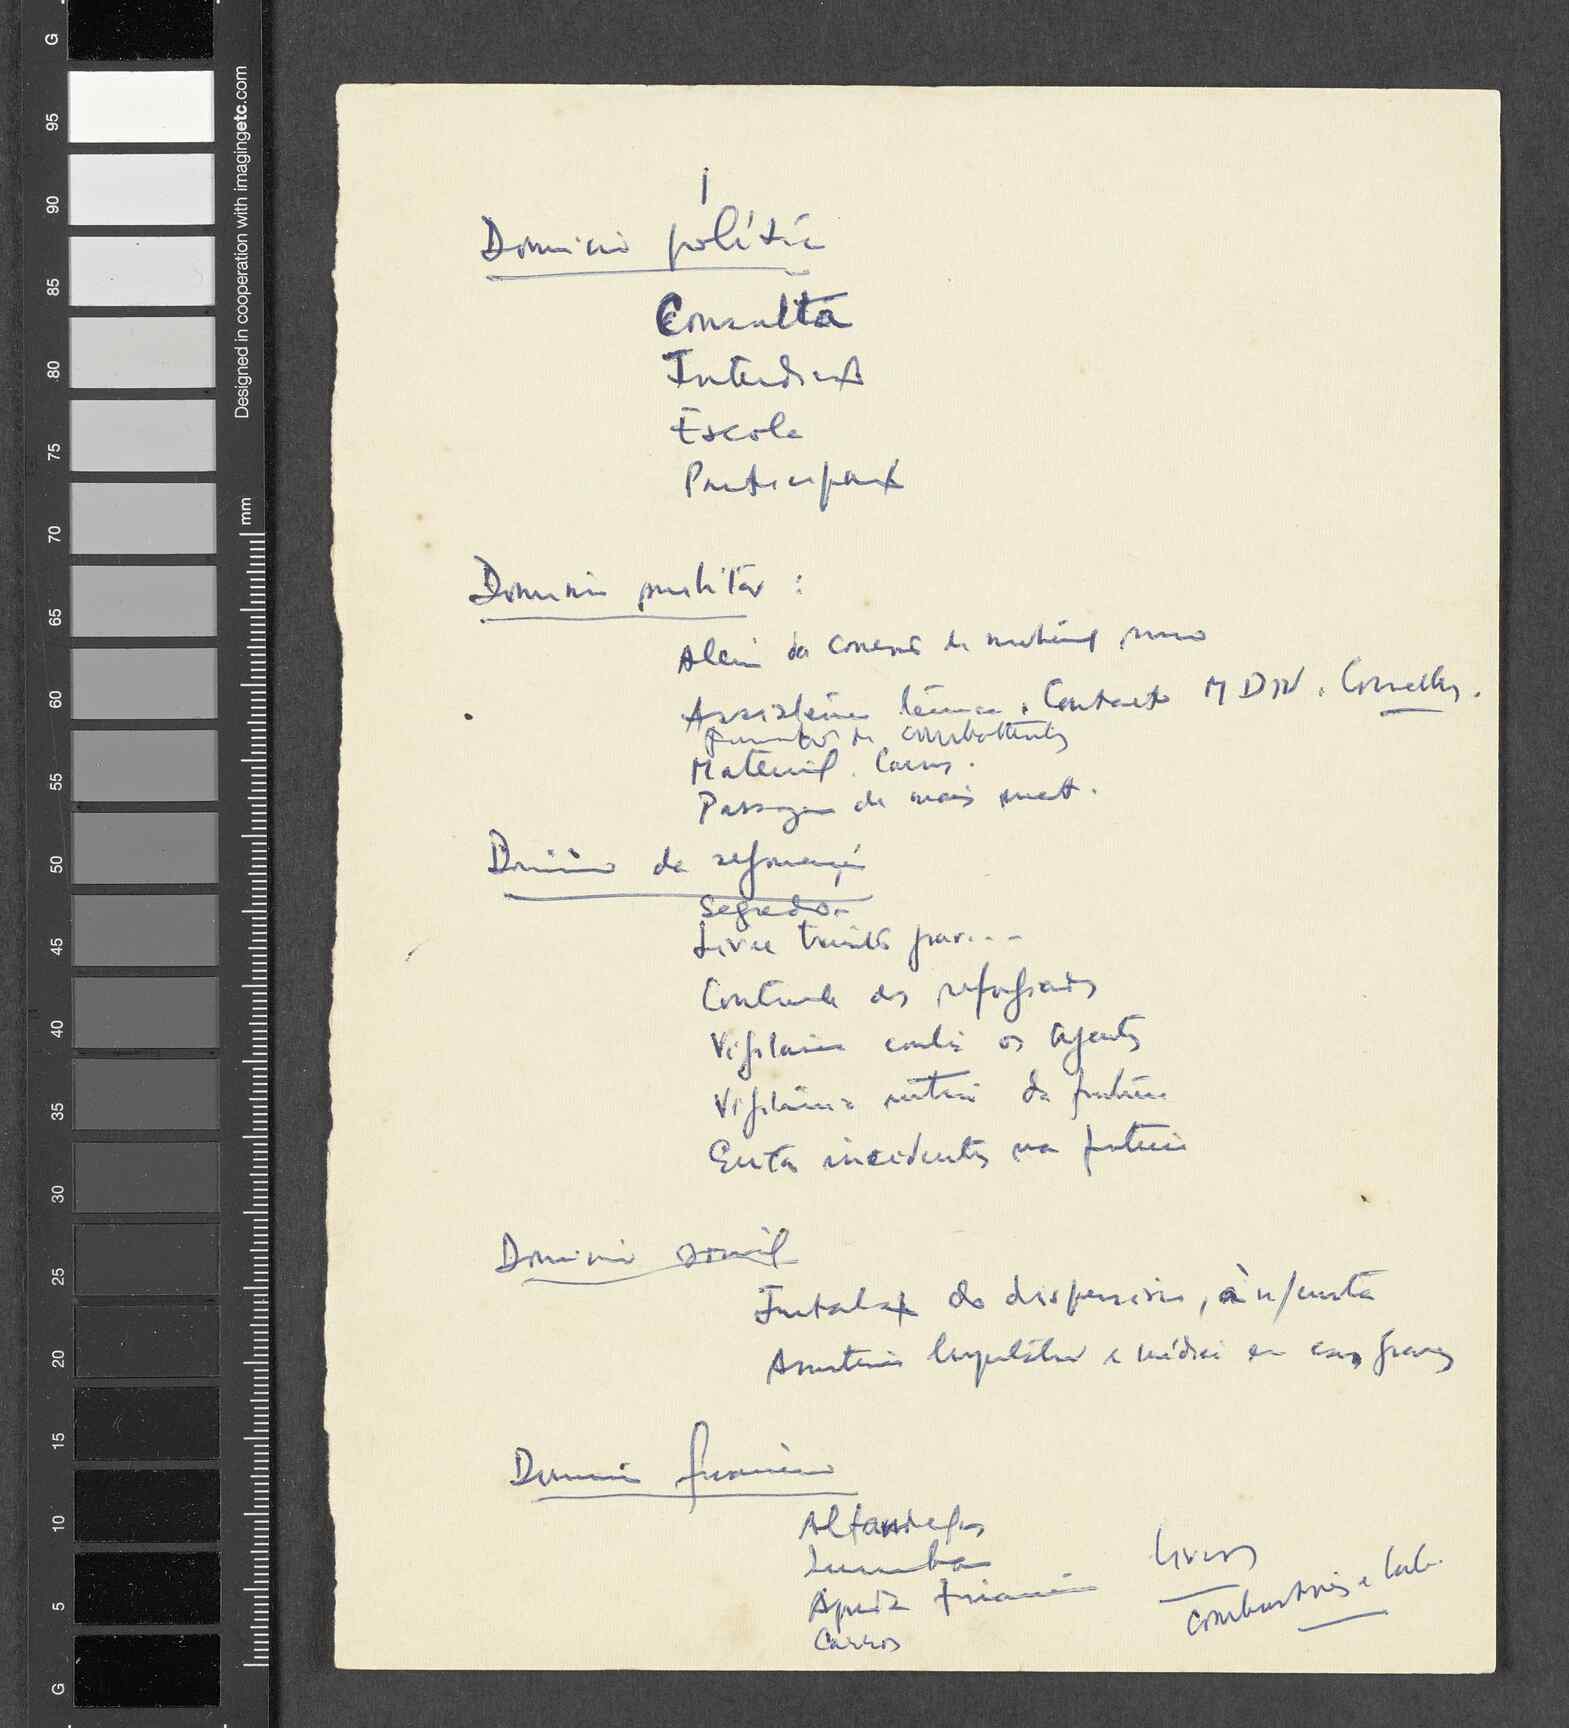 G
95
90
85
80
75
70
65
60
55
50
45
40
35
30
25
20
15
10
5
G
Designed in cooperation with imagingetc.com
mm
I
Domínio político
Consulta
Escola
Participação
Domínio militar :
Além da de material
Assistência técnica. Contacto M D N. Conselhos.
de combattentes
Material. Carros.
Passagem de mais mat.
Domínio da segurança
Segredo
Livre trânsito para...
Controle dos refugiados
Vigilância contra os agentes
Vigilância da fronteira
Evitar incidentes na fronteira
Domínio social
Instalação do dispensário,
Assistência hospitalar e médica em casos graves
Domínio financeiro
Alfandegas
Ajuda financeira
Carros
Livros
Combustíveis e lub.